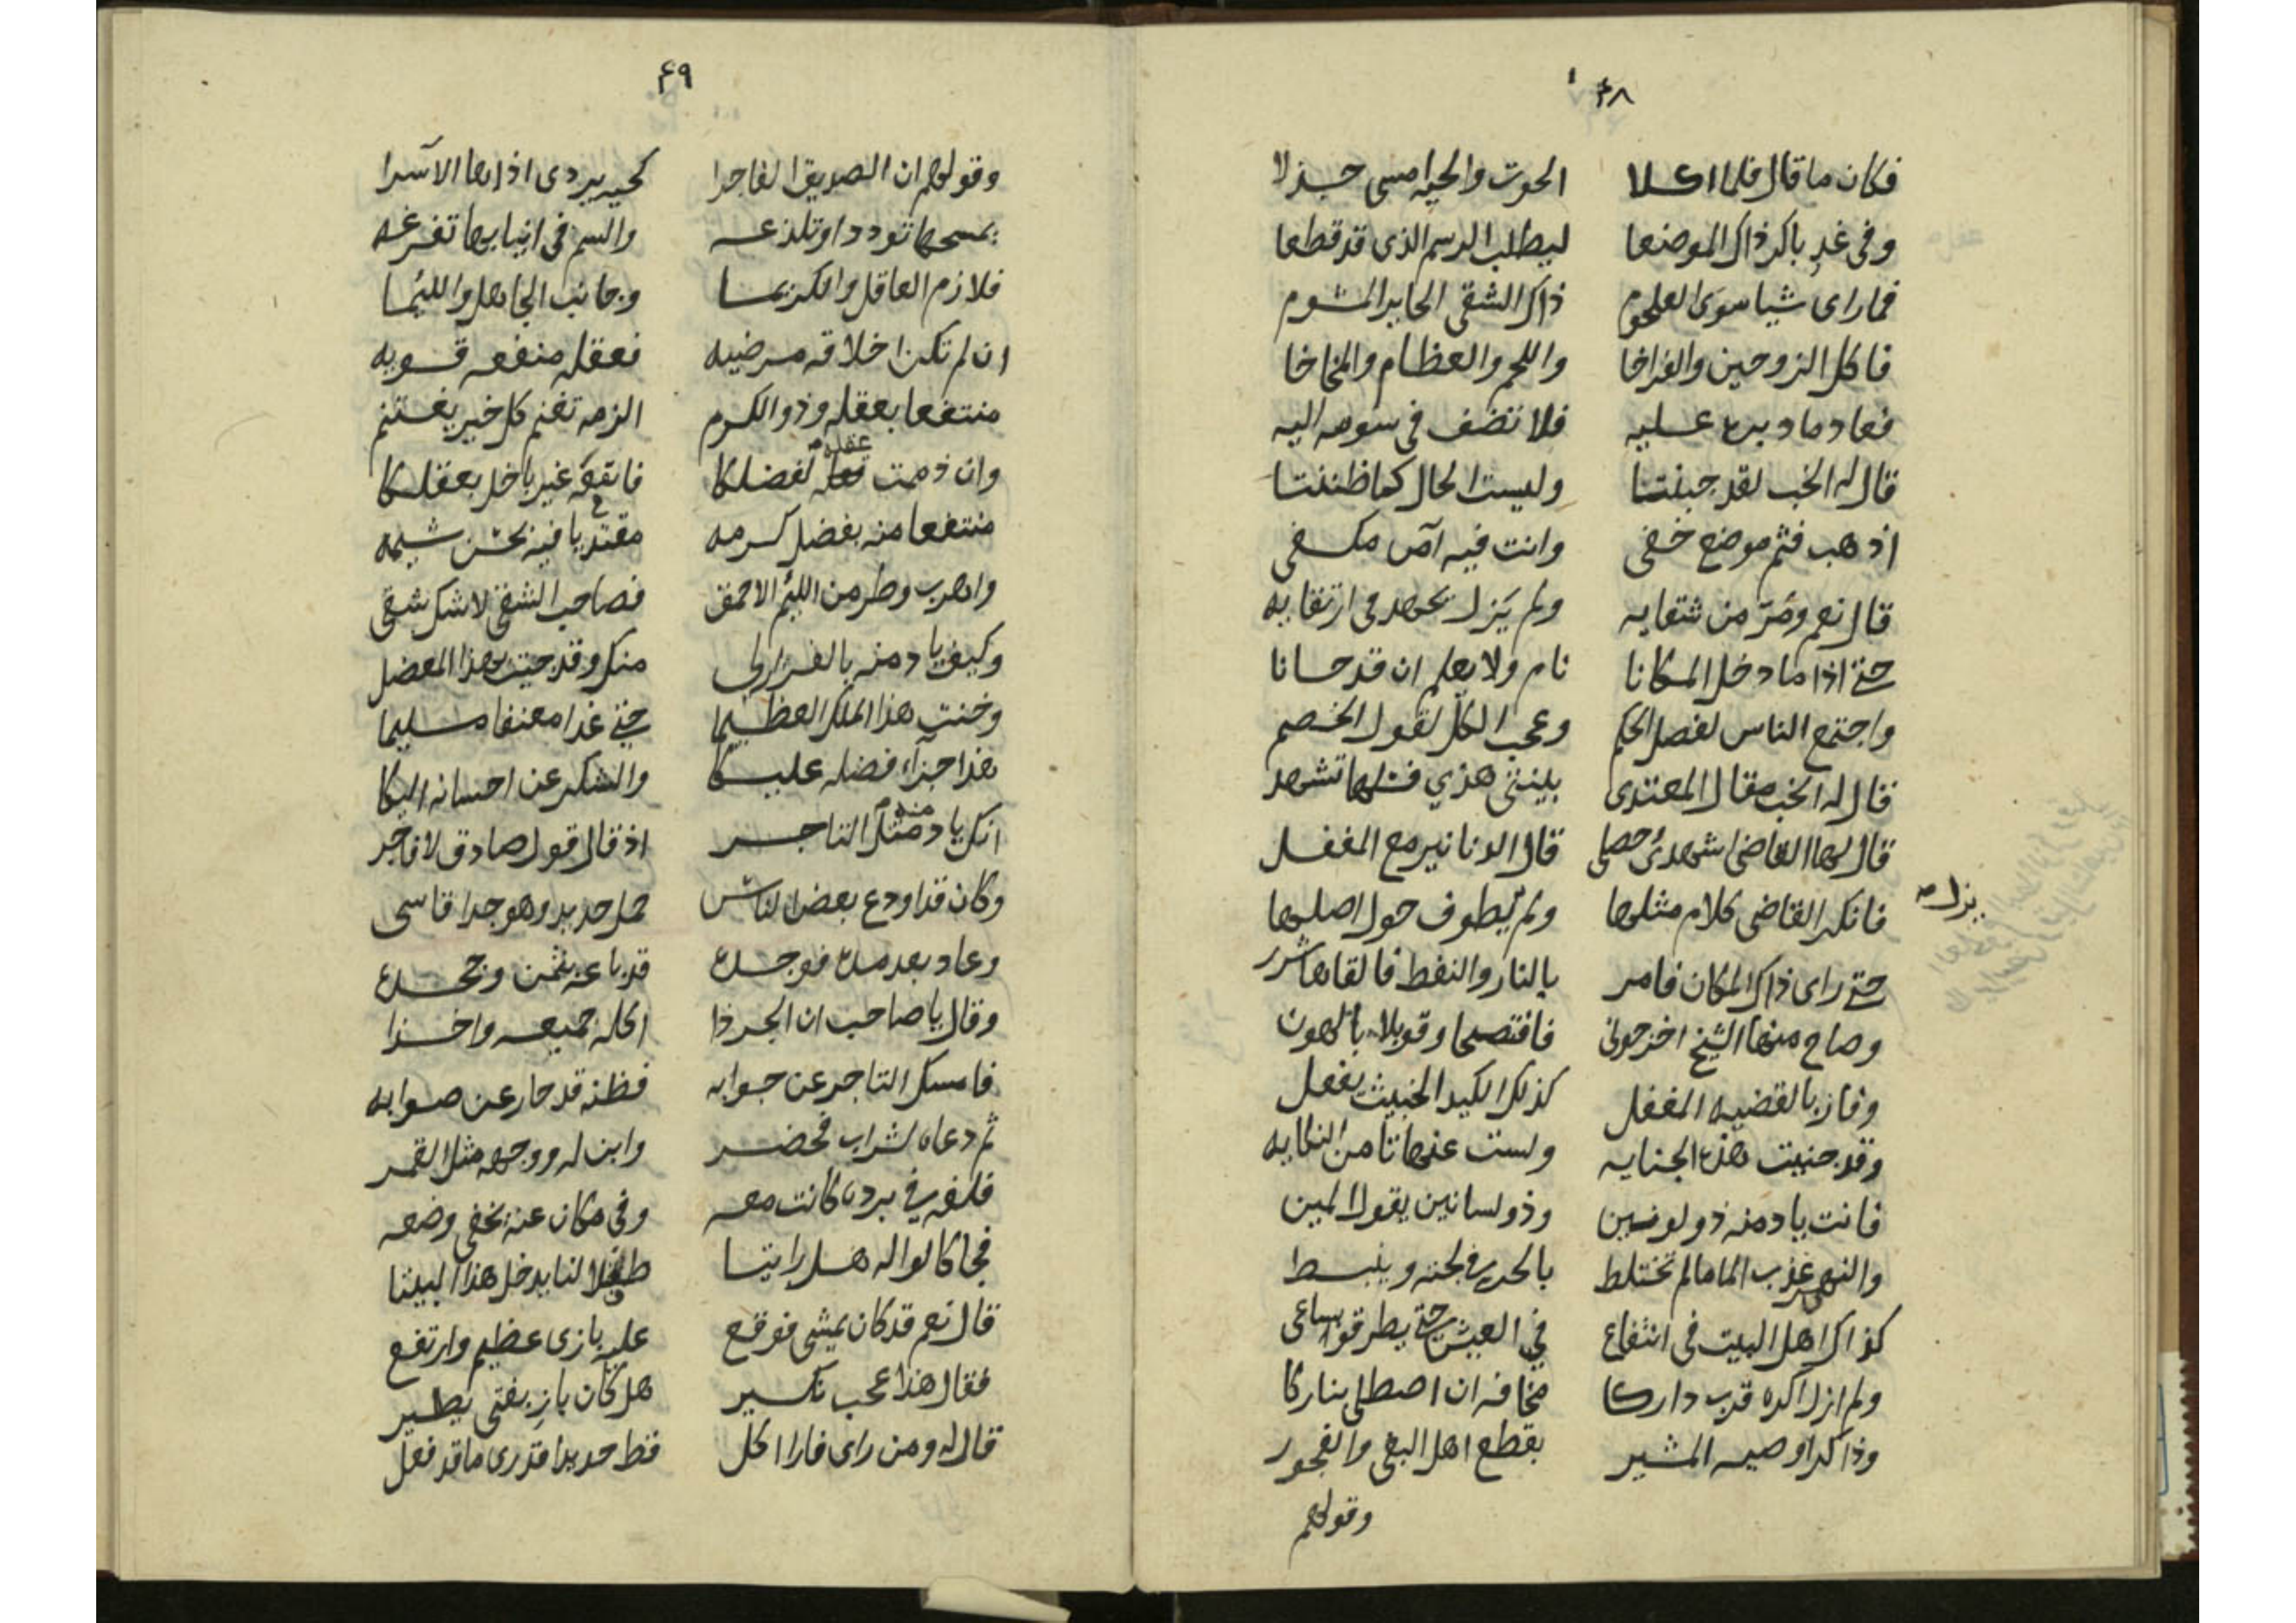 ۴۸
فكان ما قال فلما اكلا الحوت والحية امسى جذلا
وفى غد باكر ذاك الموضعا ليطلب الرسم الذى قد قطعا
فما راى شيا سوى العلجوم ذاك الشقى الحاير المشوم
فاكل الزوجين والفراخا واللحم والعظام والمخاخا
فعاد ما دبره عليه فلا تضف فى سومه اليه
قال له الخب لقد جبنتا وليست الحال كما ظننتا
اذهب فثم موضع خفى وانت فيه آمن مكفى
قال نعم ومر من شقايه ولم يزل يجهد فى ارتقايه
حتى اذا ما دخل المكانا نام ولا يعلم ان قد حانا
واجتمع الناس لفصل الحكم وعجب الكل لقول الخصم
قال له الخب مقال المعتدى بينتى هذي فسلها تشهد
قال لها القاضى اشهدى حصلى قال الدنانير مع المغفل
فانكر القاضى كلام مثلها ولم يطوف حول اصلها
يزل
حتى راى ذاك المكان فامر بالنار والنفط فالقاها شرر
وصاح منها الشيخ اخرجونى فافتضحا وقوبلا بالهون
وفاز بالقضيه المغفل كذلك الكيد الخبيث يفعل
وقد جنيت هذه الجنايه ولست عنها تامن النكايه
فانت يا دمنه ذو لونين وذو لسانين يقول المين
والنهر عذب الما ما لم تختلط بالحر فى لجته وينبسط
كذاك اهل البيت فى انتفاع فى العيش حتى يطرقوا بساعى
ولم ازل اكره قرب داركا مخافه ان اصطلى بناركا
وذاك اوصيه المشير بقطع اهل البغى والفجور
وقولهم
۴۹
وقولهم ان الصديق الفاجرا كحيه يردى اذاها الآسرا
يمسحها توددا وتلذعه والسم فى انيابها تفرغه
فلازم العاقل والكريما وجانب الجاهل واللئيما
ان لم تكن اخلاقه مرضيه فعقله منفعه قويه
منتفعا بعقله وذو الكرم الزمه تغنم كل خير يغتنم
وان ذممت عقله لفضلكا فابقه غير باخل بعقلكا
منتفعا منه بفضل كرمه مقتديا فيه بحسن شيمه
واهرب وطر من اللئيم الاحمق فصاحب الشقى لاشك شقى
وكيف يا دمنه بالفرار لى منك وقد جيت بهذا المعضل
وخنت هذا الملك العظيما حتى غدا معنفا مليما
هذا جزآء فضله عليكا والشكر عن احسانه اليكا
انك يا دمنه مثل التاجر اذ قال قول صادق لا فاجر
وكان قد اودع بعض الناس حمل حديد وهو جدا قاسى
وعاد بعد مده فوجده قد باعه بثمن وجحده
وقال يا صاحب ان الجرذا اكله جميعه واخذا
فامسك التاجر عن جوابه فظنه قد حار عن صوابه
ثم دعاه لشراب فحضر وابن له ووجهه مثل القمر
فلفه فى برده كانت معه وفى مكان عنه يخفى وضعه
فجا كالواله هل رايتا طفلا لنا يدخل هذا البيتا
قال نعم قد كان يمشى فوقع عليه بازى عظيم وارتفع
فقال هذا عجب نكير هل كان باز بفتى يطير
قال له ومن راى فارا اكل قط حديدا قدرى ما قد فعل